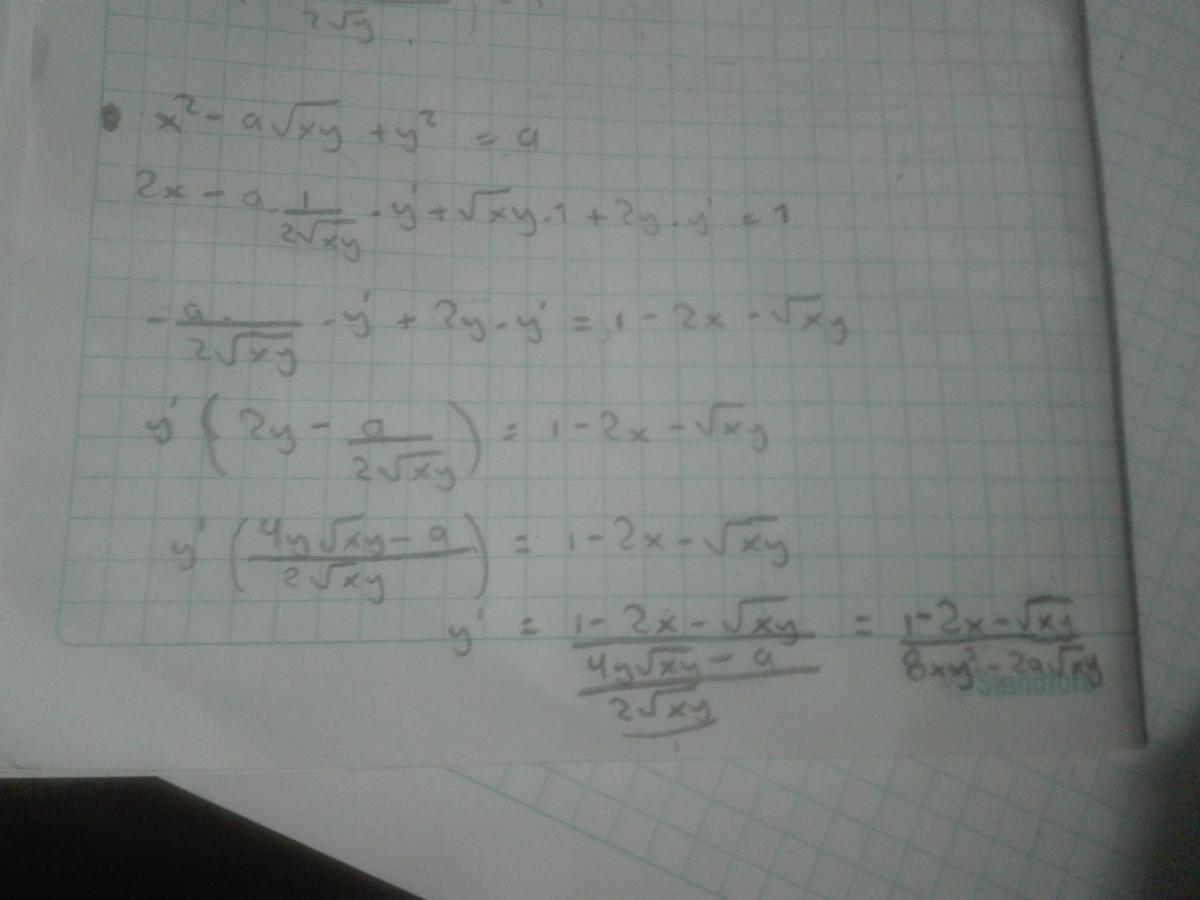 2√y
• x² - a√xy + y² = a
2x - a · 1/(2√xy) · y' + √xy · 1 + 2y · y' = 1
- a/(2√xy) · y' + 2y · y' = 1 - 2x - √xy
y' (2y - a/(2√xy)) = 1 - 2x - √xy
y' ((4y√xy - a)/(2√xy)) = 1 - 2x - √xy
y' = (1 - 2x - √xy)/((4y√xy - a)/(2√xy)) = (1 - 2x - √xy)/(8xy² - 2a√xy)